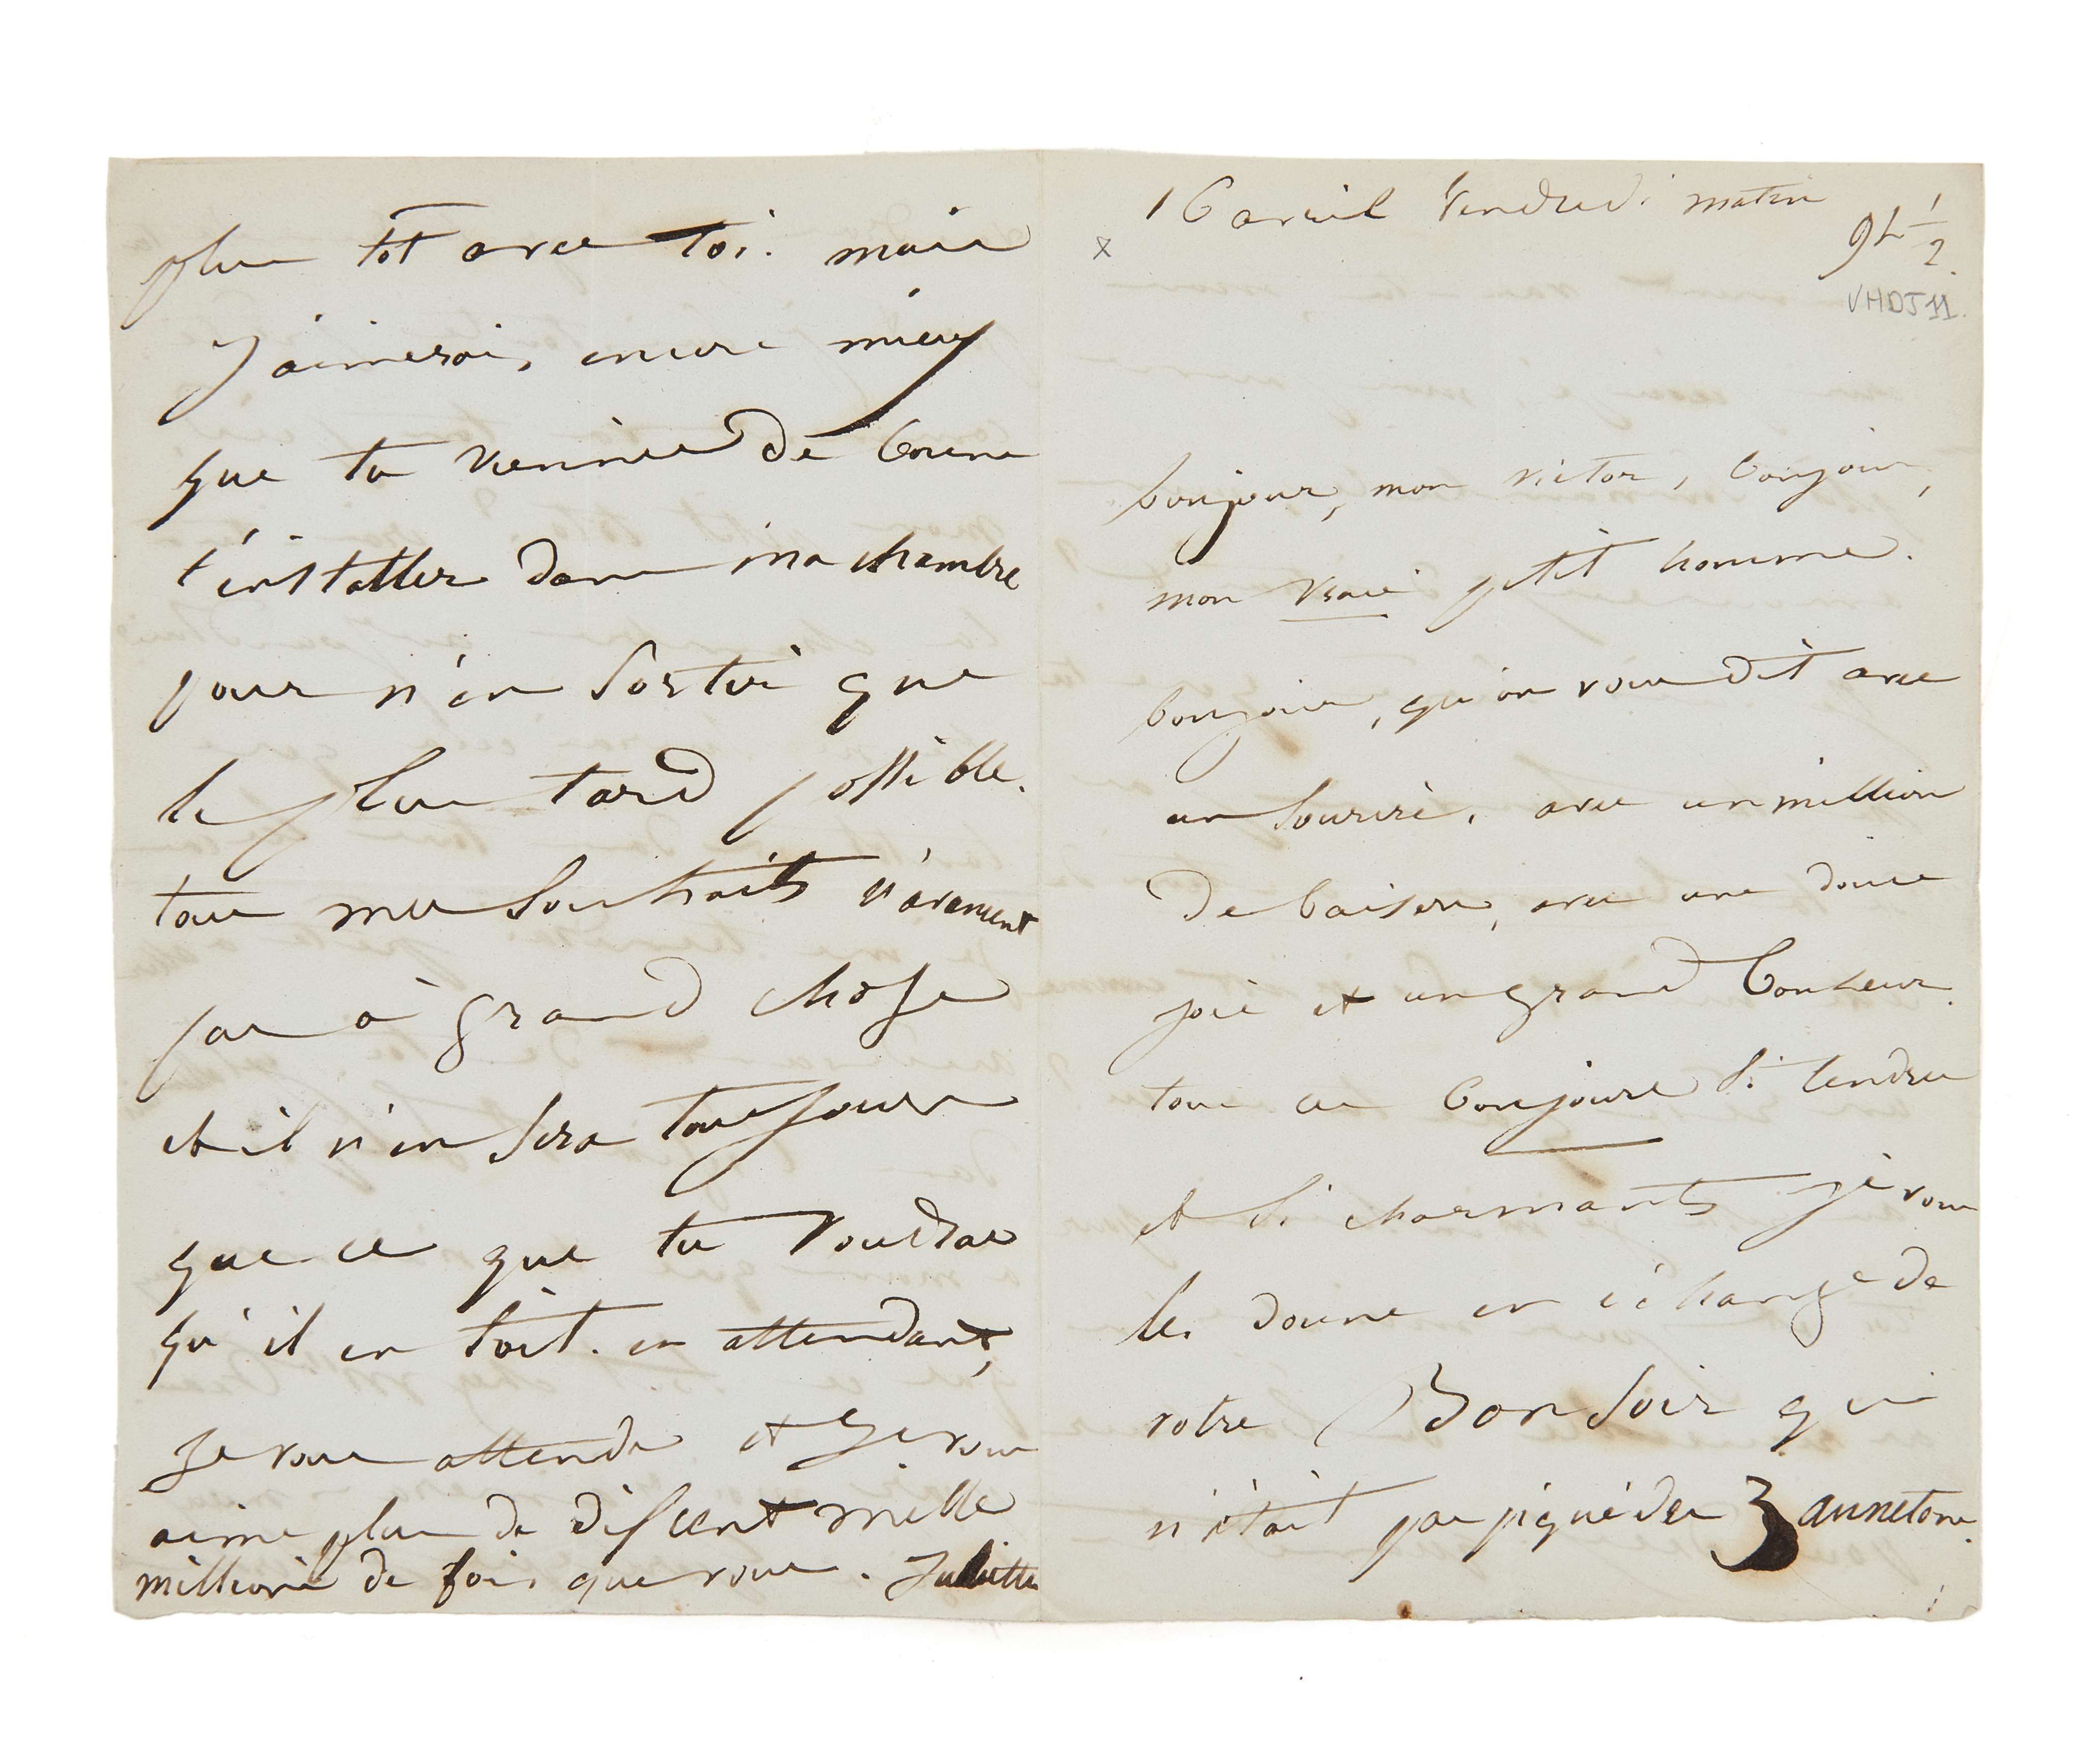 16 avril Vendredi matin
x
9h 1/2.
VHDJ 11.
bonjour, mon victor, bonjour,
mon vrai petit homme.
bonjour, qu'on vous dit avec
un sourire, avec un million
de baisers, avec une douce
joie et un grand bonheur.
tous ces bonjours si tendres
et si charmants je vous
les donne en échange de
votre Bonsoir qui
n'était pas piqué des 3 annetons.
plus tôt avec toi. mais
J'aimerais encore mieux
que tu viennes de bonne
t'installer dans ma chambre
pour n'en sortir que
le plus tard possible.
tous mes souhaits n'avancent
pas à grand chose
et il n'en sera toujours
que ce que tu voudras
qu'il en soit. en attendant,
Je vous attends et Je vous
aime plus de dis cent mille
millions de fois que vous. Juliette